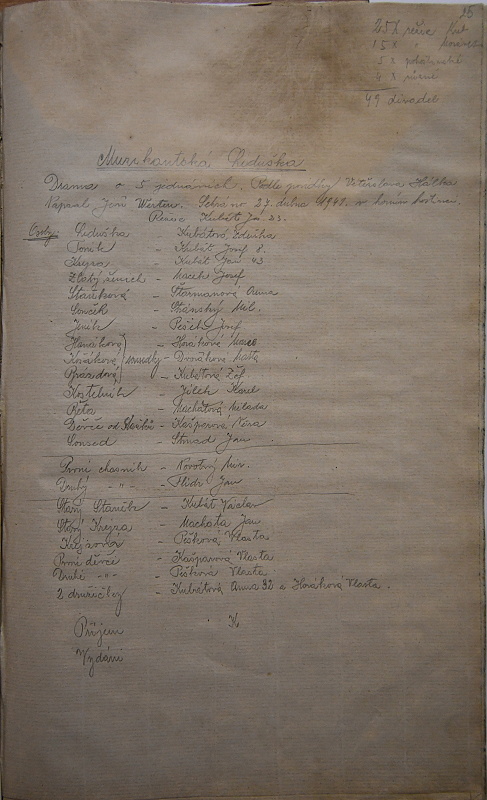 25
25 x režie Kub
15 x "
5 x pohádka
4 x různé
49 divadel
Muzikantská Liduška
Drama o 5 jednáních. Podle povídky Vítězslava Hálka
Napsal Jení Werten. Sehráno 27. dubna 1941. v horním hostinci.
Režie Kubát Jan 23.
Osoby: Liduška - Kubátová Zdeňka
Toník - Kubát Josef 8.
Krejza - Kubát Jan 43
Zlatý šumec - Macek Josef
Staňková - Starmanová Anna
Lonček - Stránský Mil.
Jeník - Pešek Josef
Horáková - Horáková Marie
Kosáková } sousedky - Dvořáková Marta
Brázdová - Kubátová Žof.
Kostelník - Jílek Karel
Běta - Machatová Milada
Děvče od Staňků - Kašparová Věra
Soused - Strnad Jan
První chasník - Novotný Mir.
Druhý -"- - Flídr Jan
Starý Staněk - Kubát Václav
Starý Krejza - Machata Jan
Krejzová - Pešková Vlasta
První děvče - Kašparová Vlasta
Druhé -"- - Pešková Vlasta
2 družičky - Kubátová Anna 32 a Horáková Vlasta.
Příjem K
Vydání